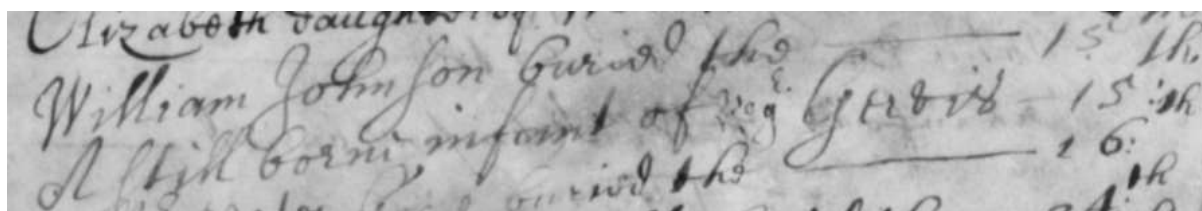 Elizabeth daughter of
William Johnson buried the 15 th
A still borne infant of Gervis 15 th
buried the 16: th